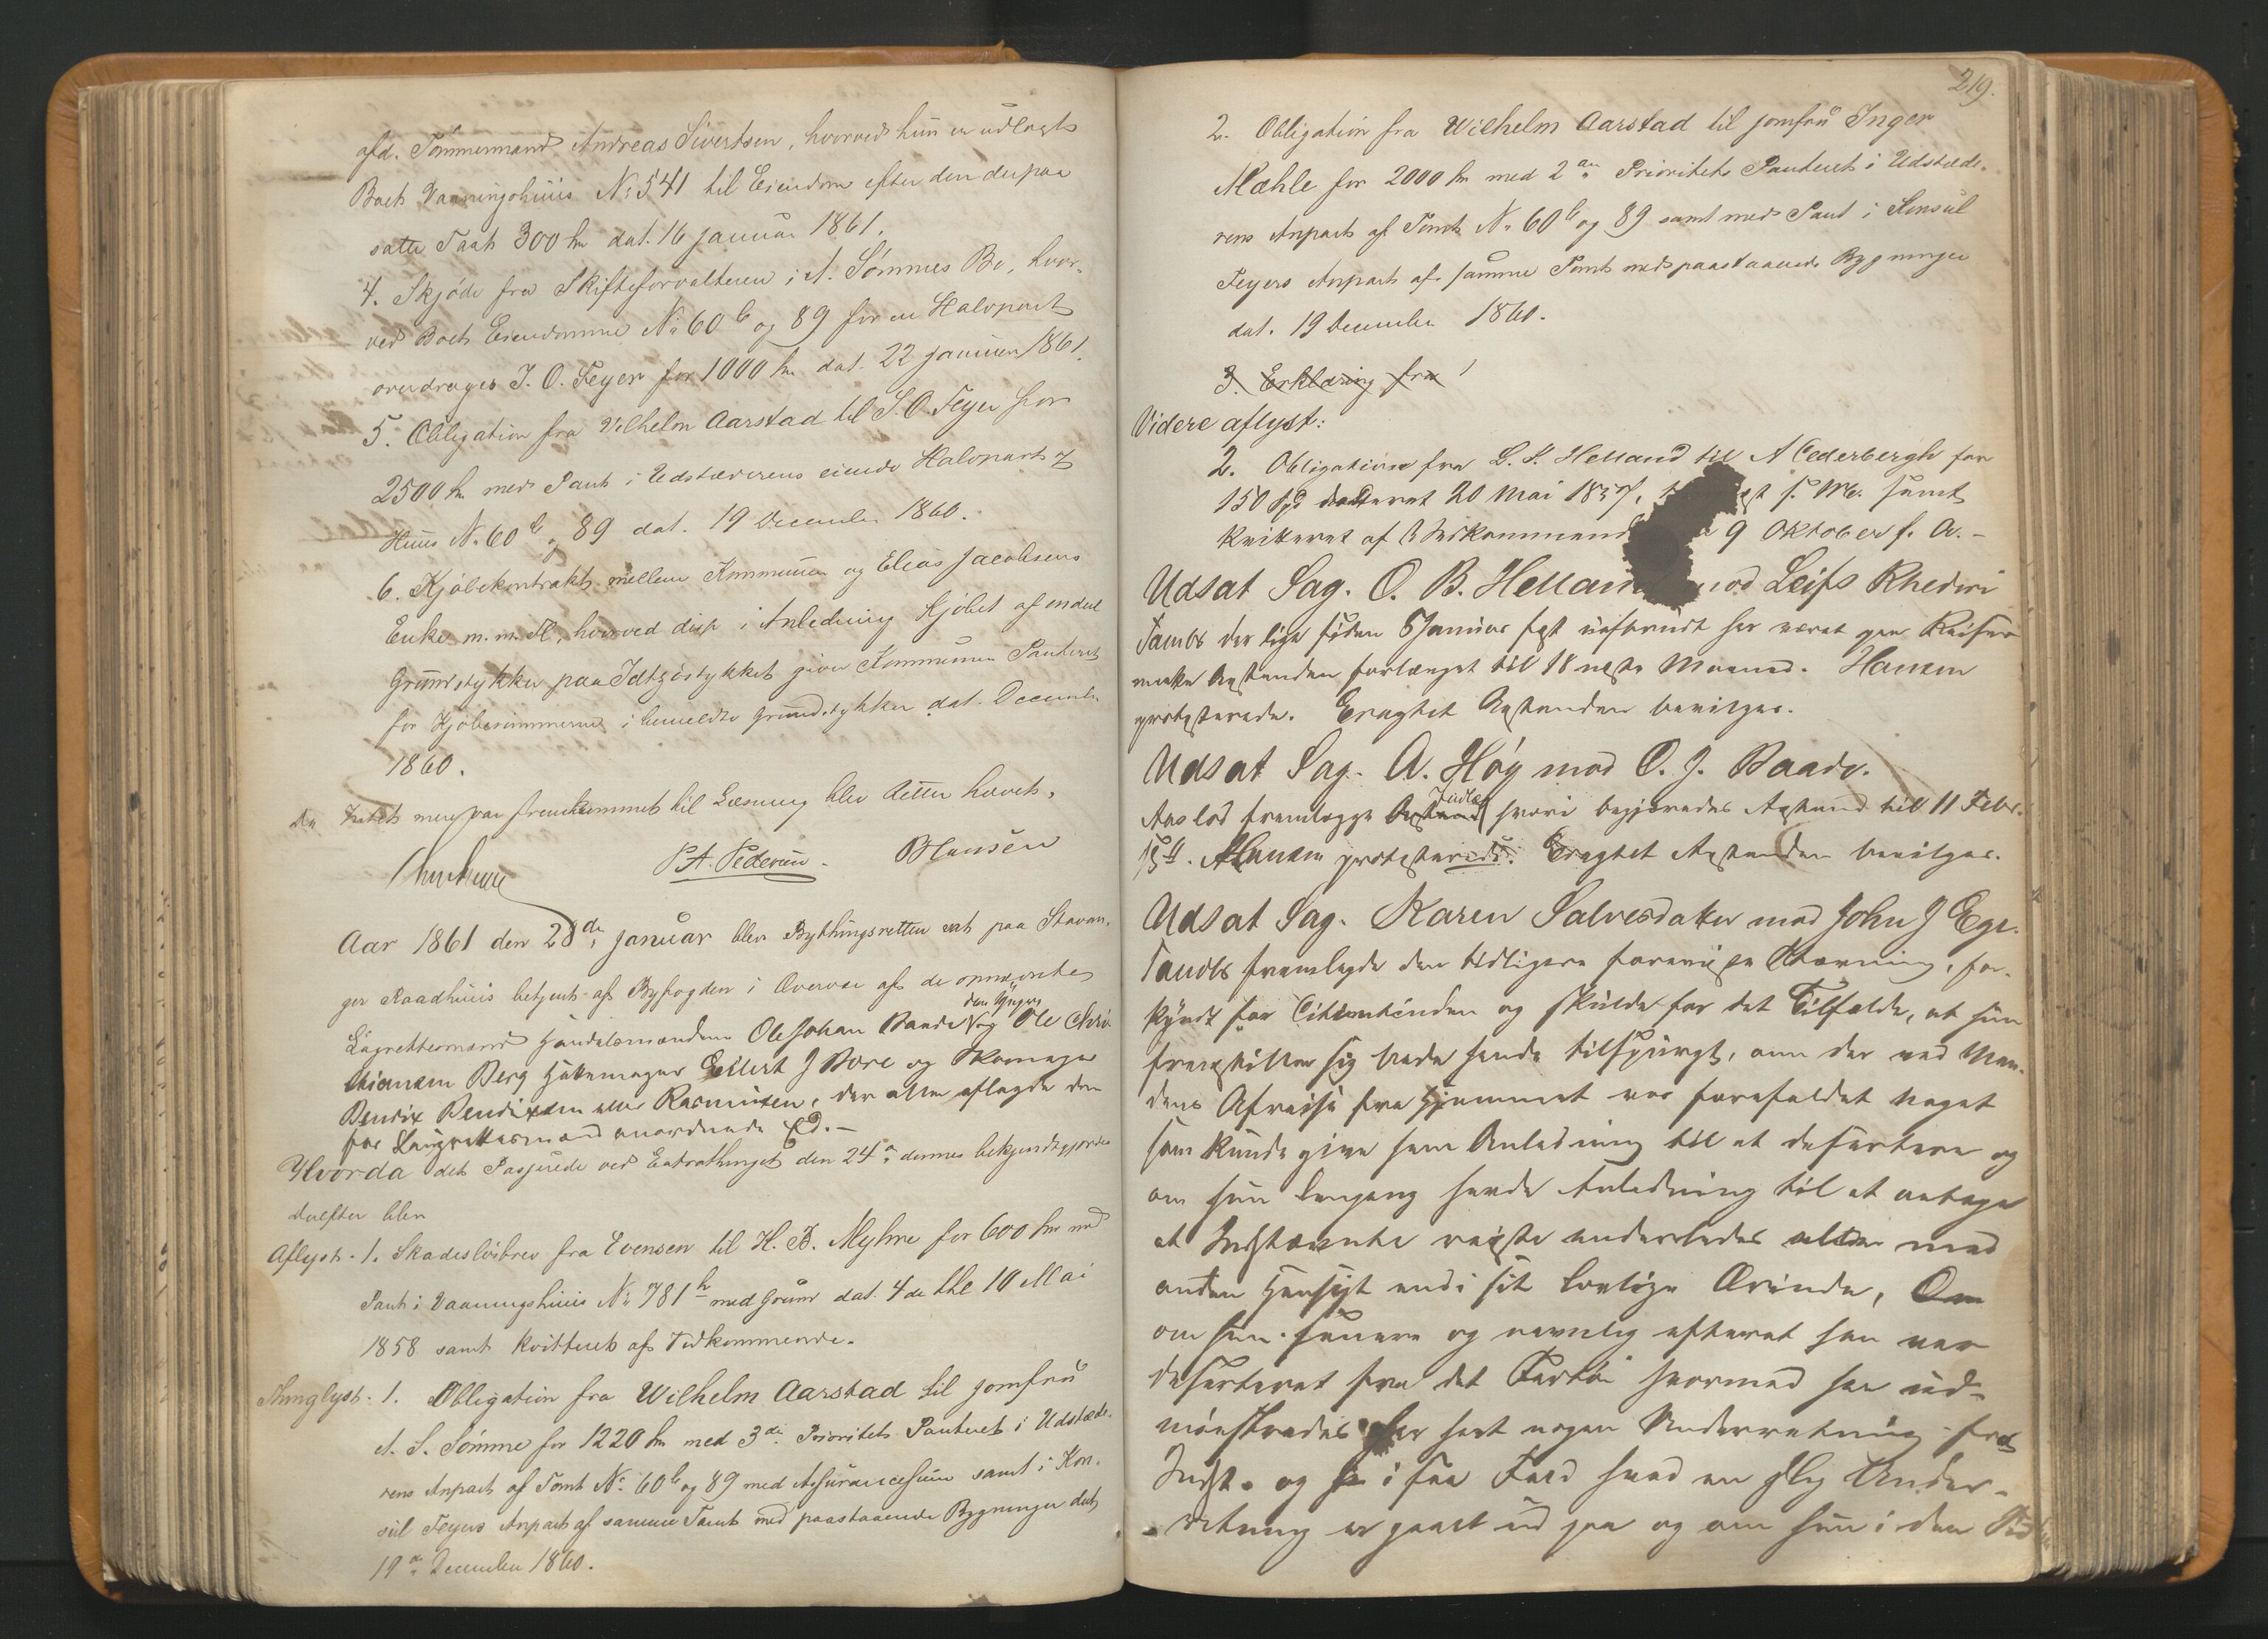 afd. Tömmermand Andreas Sivertsen, hvorved hun er udlagt
Boets Vaaningshuus No 541 til Eiendom efter den derpaa
satte Taxt 300 dat. 16 Januar 1861.
4. Skjöde fra Skifteforvalteren i A. Sömmes Bo, hvor-
ved Boets Eiendomme No 60b og 89 for en Halvpart
overdrages J. O. Feyer for 1000 dat. 22 Januar 1861.
5. Obligation fra Vilhelm Aarstad til J. O. Feyer for
2500 med Pant i Udstæderens eiende Halvpart af
Huus No 60b og 89 dat. 19 December 1860.
6. Kjöbekontrakt mellem Kommunen og Elias Jacobsens
Enke m. m. fl., hvorved disse i Anledning Kjöbet af endeel
Grundstykker paa giver Kommunen Panteret
for Kjöbesummerne i bemeldte Grundstykker dat. December
1860.
da Intet mere var fremkommet til Læsning blev Retten hævet.
P. A. Pedersen. B Hansen
Aar 1861 den 28de Januar blev Bythingsretten sat paa Stavan-
ger Raadhuus betjent af Byfogden i Overvær af de opnævnte
den Yngre
Laugrettesmænd Handelsmændene Ole Johan Baade og Ole Chri-
stiansen Berg Hattemager Eilert J Bore og Skomager
Bendix Bendixsen eller Rasmusen, der alle aflagde den
for Laugrettesmænd anordnede Ed. -
Hvorda det Passerede ved Extrathinget den 24de dennes bekjendtgjordes
derefter blev
Aflyst. 1. Skadeslösbrev fra Evensen til H. B. Myhre for 600 med
Pant i Vaaningshuus No 781 h med Grund dat. 4de thl 10 Mai
1858 samt kvitteret af Vedkommende.
Thinglyst. 1. Obligation fra Wilhelm Aarstad til Jomfru
A. S. Sömme for 1220 med 3die Prioritets Panteret i Udstæde-
rens Anpart af Tomt No 60b og 89 med Assurancesum samt i Kon-
sul Feyers Anpart af samme Tomt med paastaaende Bygninger dat.
19de December 1860.
219.
2. Obligation fra Wilhelm Aarstad til Jomfru Inger
Mæhle for 2000 med 2den Prioritets Panteret i Udstæde-
rens Anpart af Tomt No 60b og 89 samt med Pant i Konsul
Feyers Anpart af samme Tomt med paastaaende Bygninger
dat. 19 December 1860.
3. Erklæring fra
Videre aflyst:
2. Obligation fra L. S. Helland til A Cederbergh for
150 Spd dateret 20 Mai 1857, samt
kviteret af Vedkommend 9 Oktober f. A. -
Udsat Sag. O. B. Helland mod Leifs Rhederi
Tambs der lige siden 5 Januar sidst uafbrudt har været paa Reiser
Anstanden forlænget til 18 næste Maaned. Hansen
protesterede. Eragtet Anstanden bevilges.
Udsat Sag. A. Höy mod O. J. Baade.
Indlæg
Aas lod fremlægge Anstand hvori begjæredes Anstand til 11 Febr.
Hansen protesterede. Eragtet Anstanden bevilges.
Udsat Sag. Karen Salvesdatter mod John J Ege.
Tambs fremlagde den tidligere foreviste Stævning, for-
kyndt for Citantinden og skulde for det Tilfælde, at hun
fremstiller sig bede hende tilspurgt, om der ved Man-
dens Afreise fra Hjemmet var forefaldet noget
som kunde give ham Anledning til at desertere og
om hun dengang havde Anledning til at antage
at Indstævnte reiste anderledes eller med
anden Hensigt end i sit lovlige Ærinde, Om
om hun senere og navnlig efterat han var
deserteret fra det Fartöi hvormed han ud-
mönstredes har havt nogen Underretning fra
Indst. og i saa Fald hvad en slig Under-
retning er gaaet ud paa og om hun i den Tid